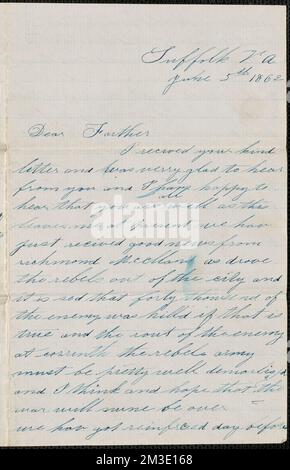 Suffolk Va
June 5th 1862
Dear Farther
I recived you kind
litter and was verry glad to hear
from you and I happy to
hear that you all well as this
leaves me at present we hav
just recived good news from
richmond Mcclland as drove
the rebels out of the city and
it is sed that forty thousand of
the enemy was killd if that is
true and the rout of the enemy
at corrinth the rebels army
must be pretty well demorlized
and I think and hope that the
war will be over
we hav got reinfreed day before
alamy
Image ID: 2M3E168
www.alamy.com